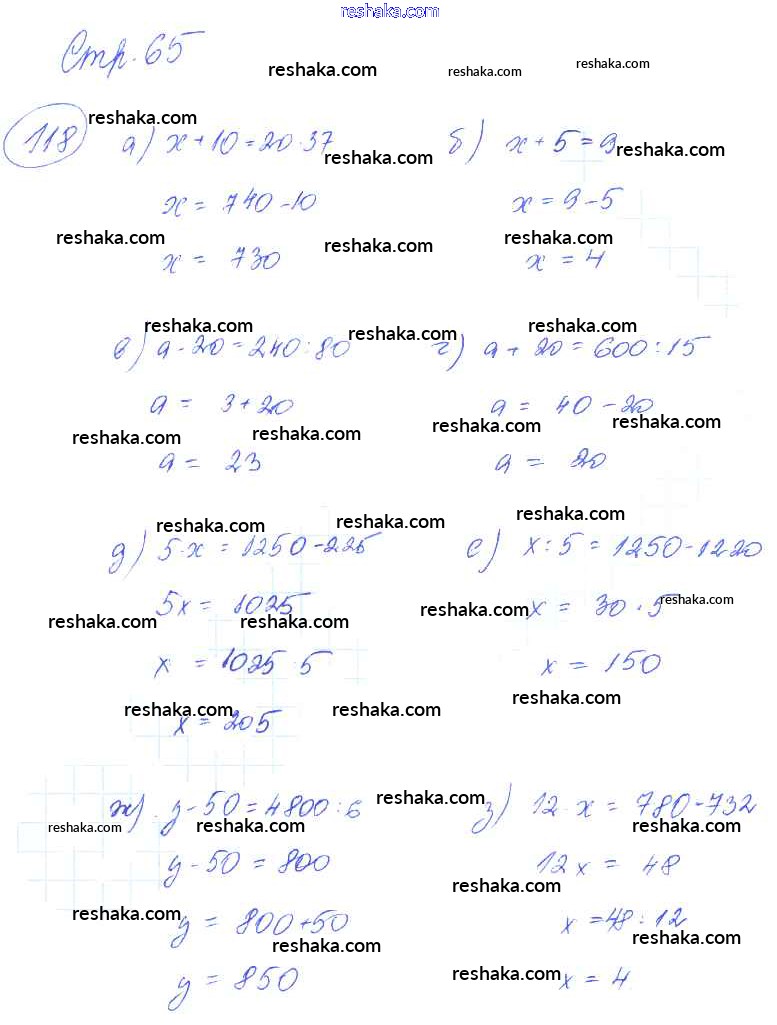 reshaka.com
Стр. 65
reshaka.com reshaka.com reshaka.com
reshaka.com
118 а) x + 10 = 20 · 37 б) x + 5 = 9
reshaka.com reshaka.com
x = 740 - 10 x = 9 - 5
reshaka.com reshaka.com reshaka.com
x = 730 x = 4
reshaka.com reshaka.com reshaka.com
в) a - 20 = 240 : 80 г) a + 20 = 600 : 15
a = 3 + 20 a = 40 - 20
reshaka.com reshaka.com reshaka.com reshaka.com
a = 23 a = 20
reshaka.com reshaka.com reshaka.com
д) 5 · x = 1250 - 225 е) x : 5 = 1250 - 1220
5x = 1025 x = 30 · 5
reshaka.com reshaka.com reshaka.com reshaka.com
x = 1025 5 x = 150
reshaka.com reshaka.com reshaka.com
x = 205
ж) y - 50 = 4800 : 6 з) 12 · x = 780 - 732
reshaka.com reshaka.com reshaka.com reshaka.com
y - 50 = 800 12x = 48
reshaka.com
y = 800 + 50 x = 48 : 12
reshaka.com reshaka.com reshaka.com
y = 850 x = 4
reshaka.com